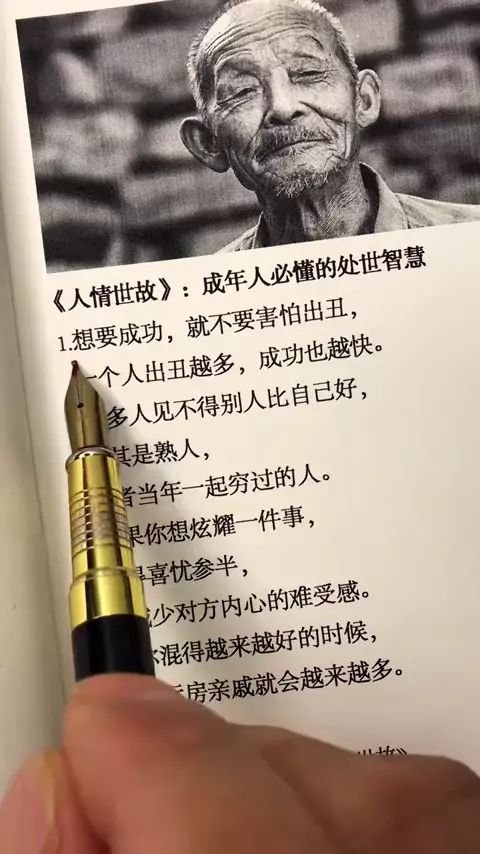 《人情世故》：成年人必懂的处世智慧
1.想要成功，就不要害怕出丑，
一个人出丑越多，成功也越快。
多人见不得别人比自己好，
其是熟人，
者当年一起穷过的人。
果你想炫耀一件事，
喜忧参半，
少对方内心的难受感。
你混得越来越好的时候，
房亲戚就会越来越多。
世故》